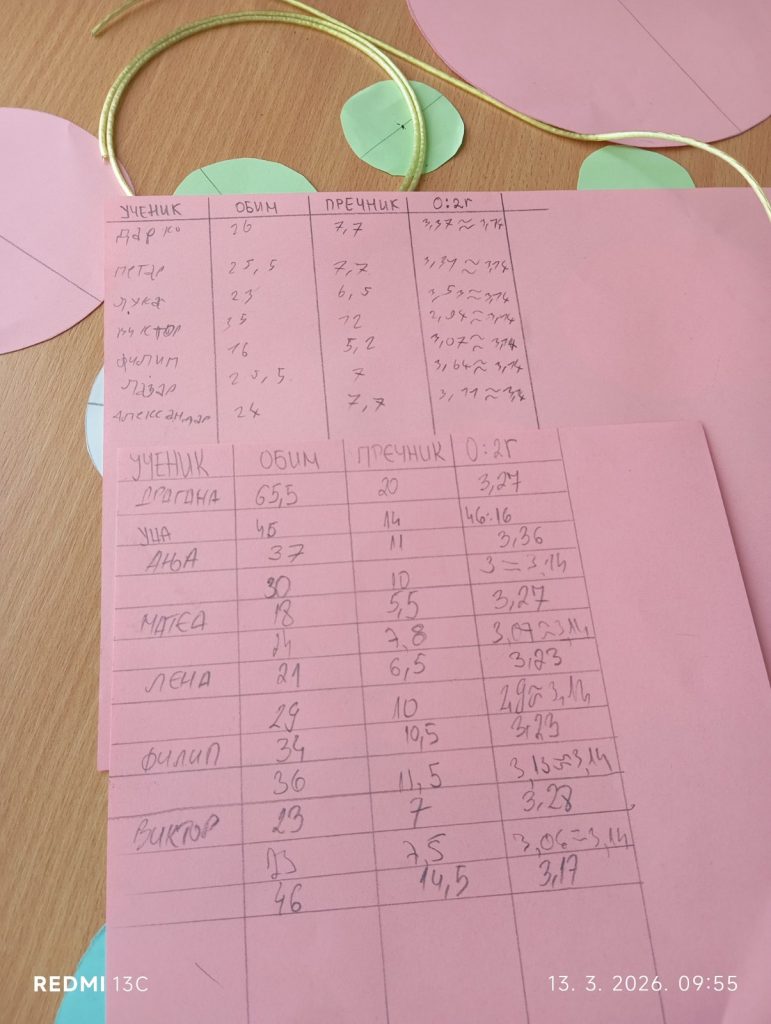 УЧЕНИК ОБИМ ПРЕЧНИК О:2r
ДАРКО 26 7,7 3,37≈3,14
ПЕТАР 25,5 7,7 3,31≈3,14
ЛУКА 23 6,5 3,53≈3,14
ВИКТОР 35 12 2,94≈3,14
ФИЛИП 16 5,2 3,07≈3,14
ЛАЗАР 25,5 7 3,64≈3,14
АЛЕКСАНДАР 24 7,7 3,11≈3,14
УЧЕНИК ОБИМ ПРЕЧНИК О:2r
ДРАГАНА 65,5 20 3,27
УЦА 45 14 46:16
АЊА 37 11 3,36
30 10 3=3,14
МАТЕА 18 5,5 3,27
24 7,8 3,07≈3,14
ЛЕНА 21 6,5 3,23
29 10 2,9≈3,14
ФИЛИП 34 10,5 3,23
36 11,5 3,13≈3,14
ВИКТОР 23 7 3,28
23 7,5 3,06≈3,14
46 14,5 3,17
REDMI 13C
13. 3. 2026. 09:55